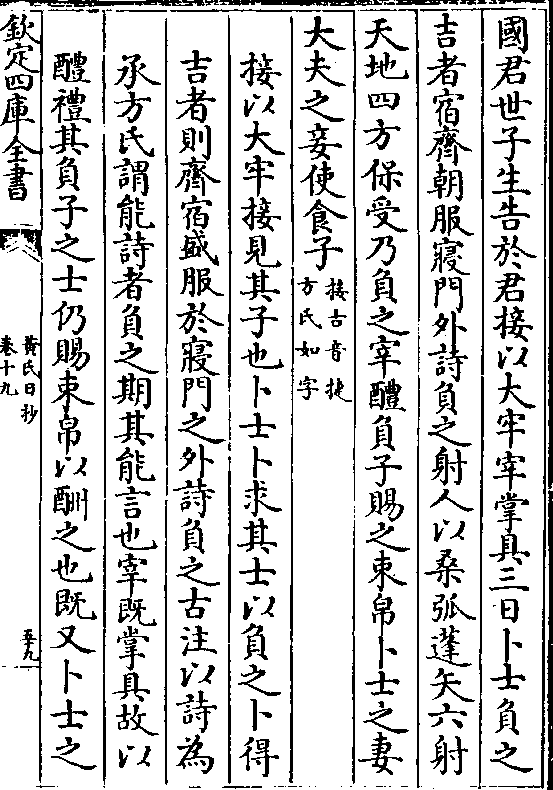 國君世子生告於君接以大牢宰掌具三日卜士負之
吉者宿齊朝服寢門外詩負之射人以桑弧蓬矢六射
天地四方保受乃負之宰醴負子賜之束帛卜士之妻
大夫之妾使食子接古音捷
方氏如字
接以大牢接見其子也卜士卜求其士以負之卜得
吉者則齊宿盛服於寢門之外詩負之古注以詩為
承方氏謂能詩者負之期其能言也宰既掌具故以
醴禮其負子之士仍賜束帛以酬之也既又卜士之
欽定四庫全書
黃氏日抄
卷十九
五九